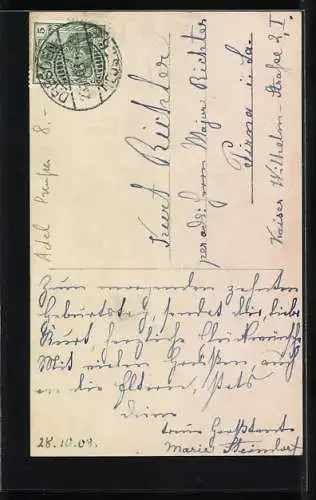 5
DRESDEN
Adel Preußen 8.-
Kurt Richter
per adr: Herrn Major Richter
Pirna i. Sa.
Kaiser Wilhelm-Straße 2, I
Zum morgenden zehnten
Geburtstag, sendet dir, lieber
Kurt, herzliche Glückwünsche
Mit vielen Grüßen, auch
an die Eltern, stets
Deine
treue Großtante
Marie Steindorf
28.10.09.